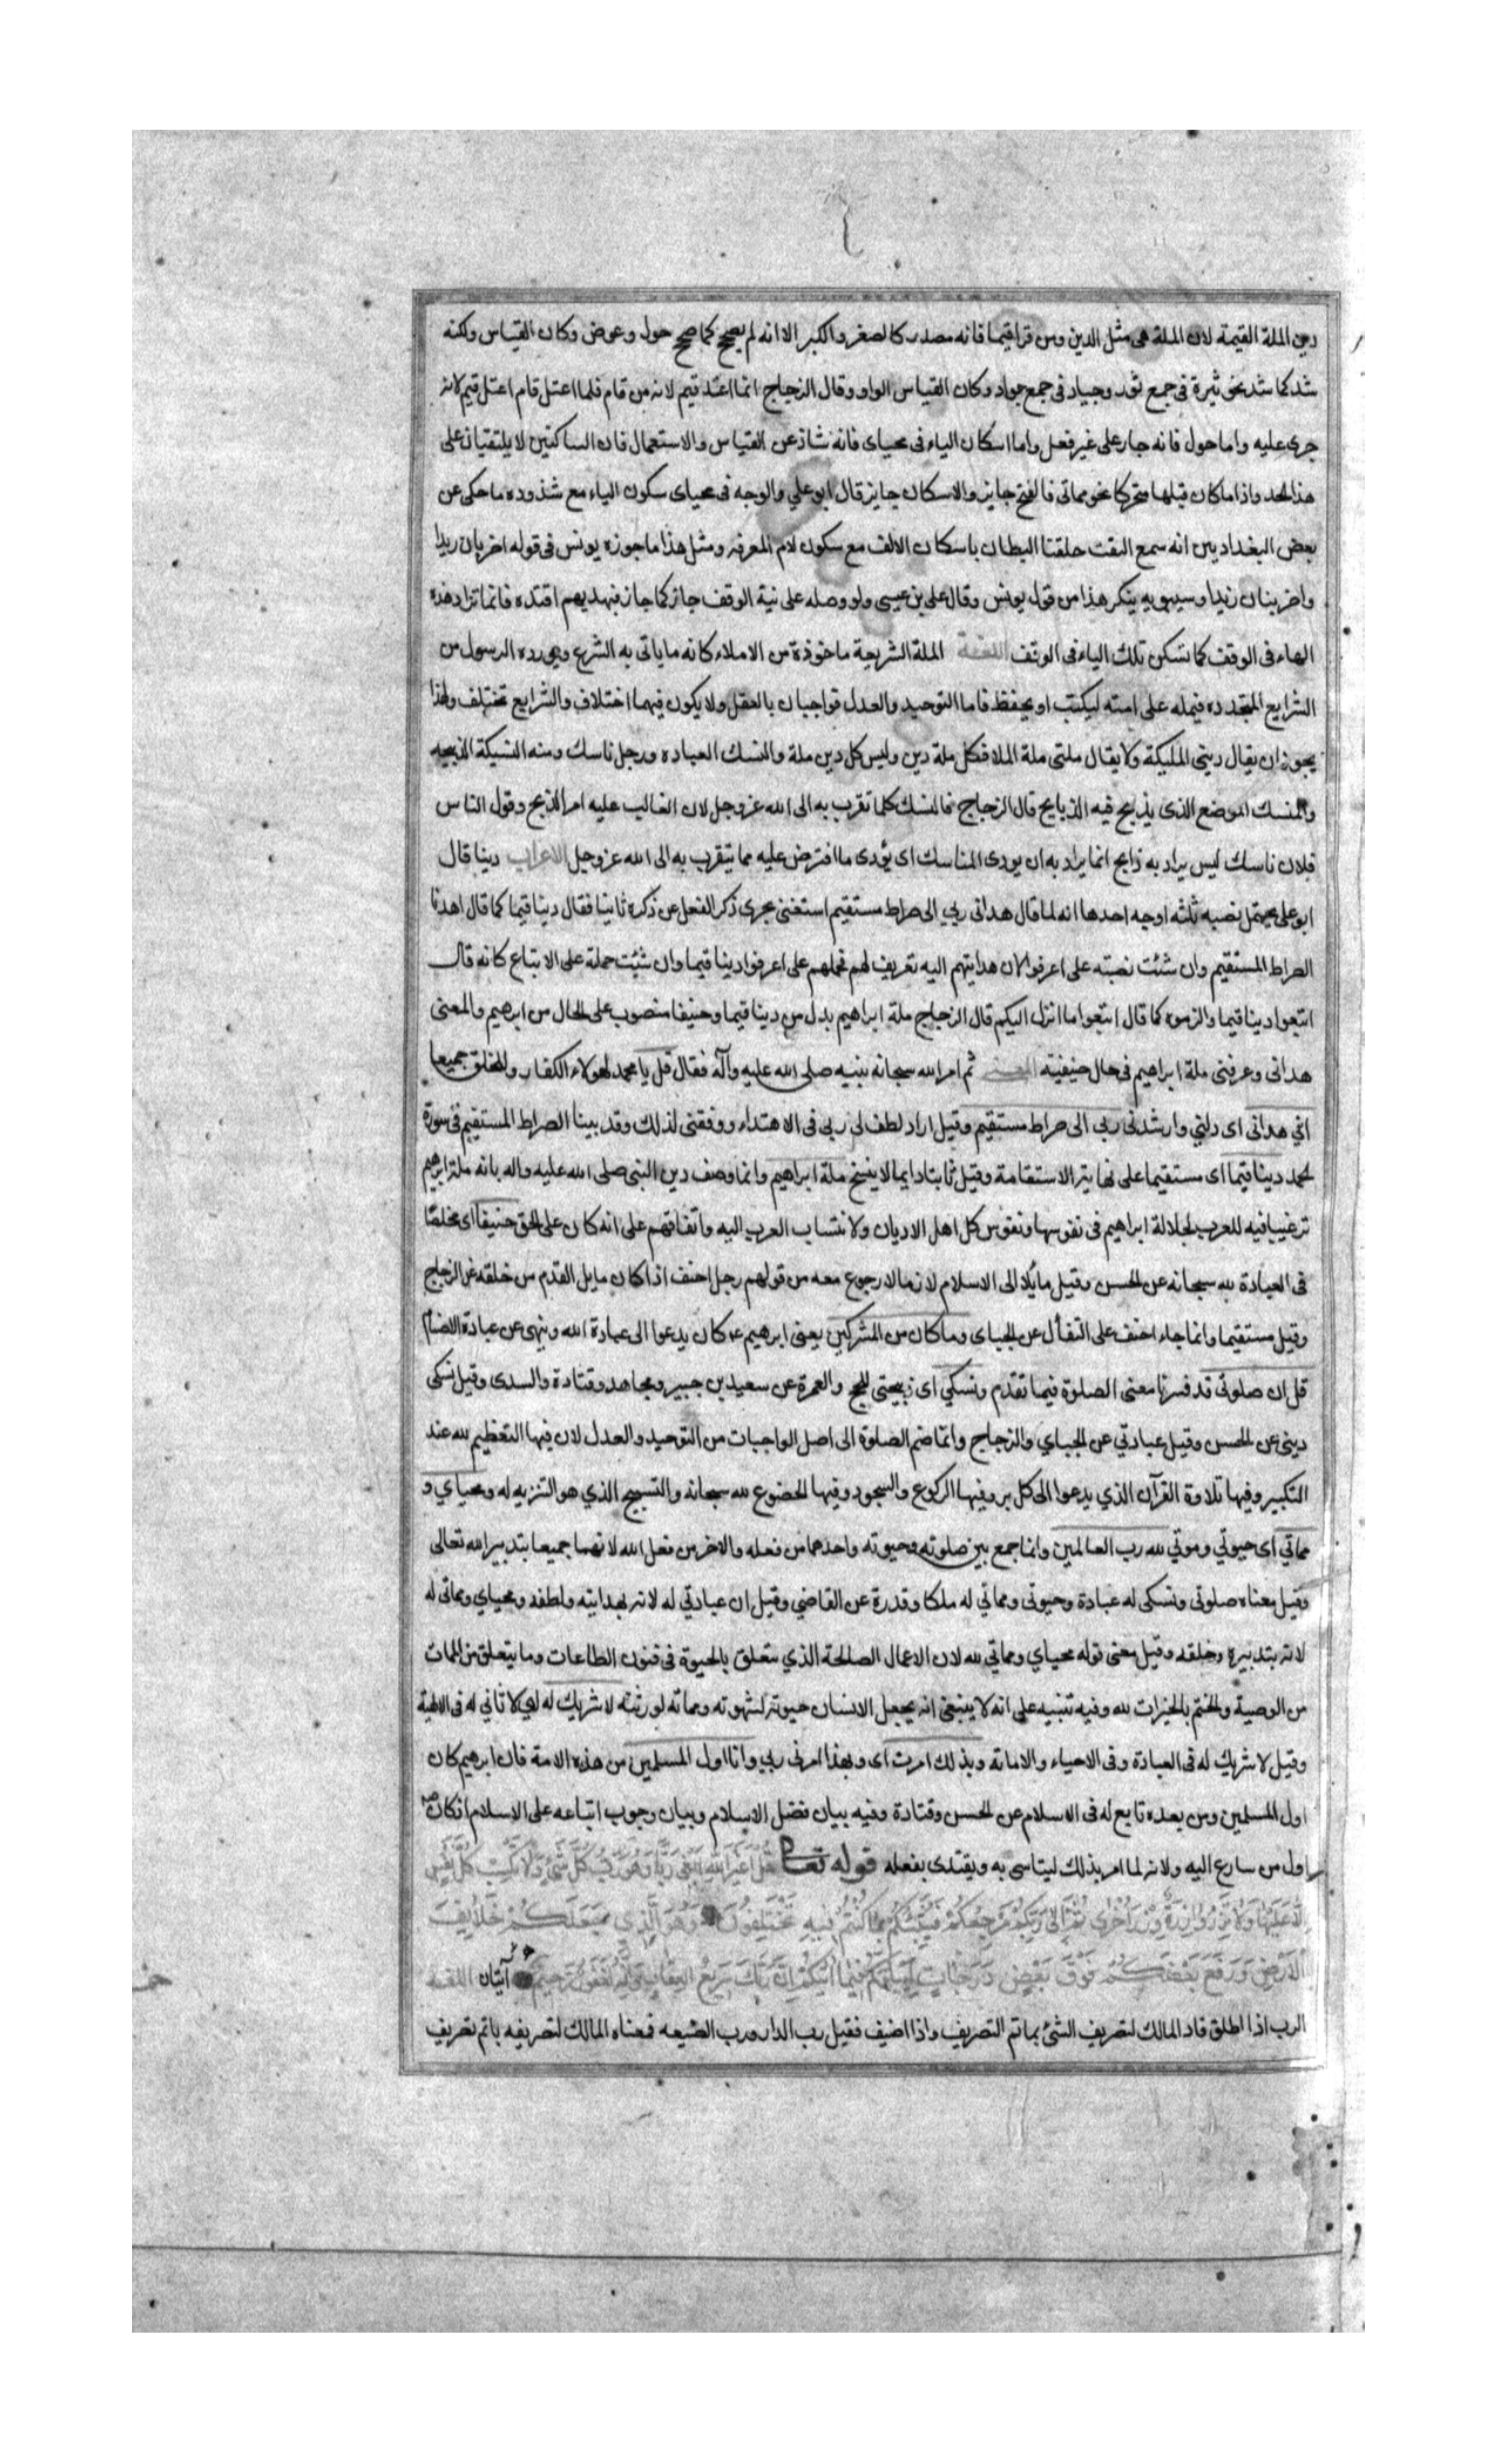 دين الملة القيمة لان الملة هى مثل الدين ومن قرا قيما فانه مصدر كالصغر والكبر الا انه لم يصحح كما صحح حول وعوض وكان القياس ولكنه
شذ كما شذ نحو ثيرة فى جمع ثور وجياد فى جمع جواد وكان القياس الواو وقال الزجاج انما اعتد قيم لانه من قام فلما اعتل قام اعتل قيم لانه
جرى عليه واما حول فانه جار على غير فعل واما اسكان الياء فى محياى فانه شاذ عن القياس والاستعمال فان الساكنين لا يلتقيان على
هذا الحد واذا ما كان قبلها متحركا نحو مماتى فالفتح جايز والاسكان جايز قال ابو علي والوجه فى محياى سكون الياء مع شذوده ما حكى عن
بعض البغداديين انه سمع التقت حلقتا البطان باسكان الالف مع سكون لام المعرفه ومثل هذا ما جوزه يونس فى قوله اضربان زيدا
واضربنان زيدا وسيبويه ينكر هذا من قول يونس وقال على بن عيسى ولو وصله على نية الوقف جاز كما جاز فبهديهم اقتده فانما تزاد هذه
الهاء فى الوقف كما تسكن تلك الياء فى الوقف اللغة الملة الشريعة ماخوذة من الاملاء كانه ما ياتى به الشرع ويورده الرسول من
الشرايع المتجدده فيمله على امته ليكتب او يحفظ فاما التوحيد والعدل فواجبان بالعقل ولا يكون فيهما اختلاف والشرايع تختلف ولهذا
يجوز ان يقال دينى المليكة ولا يقال ملتى ملة الملا فكل ملة دين وليس كل دين ملة والنسك العباده ورجل ناسك ومنه النسيكة الذبيحه
والمنسك الموضع الذى يذبح فيه الذبايح قال الزجاج فالمنسك كلما تقرب به الى الله عز وجل لان الغالب عليه امر الذبح وقول الناس
فلان ناسك ليس يراد به ذابح انما يراد به ان يودى المناسك اى يؤدى ما افترض عليه مما يتقرب به الى الله عز وجل الاعراب دينا قال
ابو على يحتمل نصبه ثلثه اوجه احدها انه لما قال هدانى ربي الى صراط مستقيم استغنى بجرى ذكر الفعل عن ذكره ثانيا فقال دينا قيما كما قال اهدنا
الصراط المستقيم وان شئت نصبته على اعرفوا لان هدايتهم اليه تعريف لهم فحملهم على اعرفوا دينا قيما وان شئت حملة على الاتباع كانه قال
اتبعوا دينا قيما والزموه كما قال اتبعوا ما انزل اليكم قال الزجاج ملة ابراهيم بدل من دينا قيما وحنيفا منصوب على الحال من ابرهيم والمعنى
هدانى وعرفنى ملة ابراهيم فى حال حنيفيته المعنى ثم امر الله سبحانه نبيه صلى الله عليه وآله فقال قل يا محمد لهولاء الكفار وللخلق جميعا
اني هدانى اى دلني وارشدنى ربى الى صراط مستقيم وقيل اراد لطف لى ربى فى الاهتداء ووفقنى لذلك وقد بينا الصراط المستقيم فى سورة
الحمد دينا قيما اى مستقيما على نهاية الاستقامة وقيل ثابتا دايما لا ينسخ ملة ابراهيم وانما وصف دين النبى صلى الله عليه واله بانه ملة ابرهيم
ترغيبا فيه للعرب لجلالة ابراهيم فى نفوسها ونفوس كل اهل الاديان ولانتساب العرب اليه واتفاقهم على انه كان على الحق حنيفا اى مخلصا
فى العبادة لله سبحانه عن الحسن وقيل مائلا الى الاسلام لازما لا رجوع معه من قولهم رجل احنف اذا كان مايل القدم من خلقه عن الزجاج
وقيل مستقيما وانما جاء احنف على التفأل عن الجباى وما كان من المشركين يعنى ابرهيم ع كان يدعوا الى عبادة الله وينهى عن عبادة الاصنام
قل ان صلوتى قد فسرنا معنى الصلوة فيما تقدم ونسكي اى ذبيحتى للحج والعمرة عن سعيد بن جبير ومجاهد وقتادة والسدى وقيل نسكى
دينى عن الحسن وقيل عبادتي عن الجباي والزجاج وانما ضم الصلوة الى اصل الواجبات من التوحيد والعدل لان فيها التعظيم لله عند
التكبير وفيها تلاوة القرآن الذي يدعوا الى كل بر وفيها الركوع والسجود وفيها الخضوع لله سبحانه والتسبيح الذي هو التنزيه له ومحياي و
مماتي اى حيوتي وموتي لله رب العالمين وانما جمع بين صلوته وحيوته واحدهما من فعله والاخر من فعل الله لانهما جميعا بتدبير الله تعالى
وقيل معناه صلوتى ونسكى له عبادة وحيوتى ومماتي له ملكا وقدرة عن القاضي وقيل ان عبادتي له لانه بهدايته ولطفه ومحياي ومماتى له
لانه بتدبيره وخلقه وقيل معنى قوله محياي ومماتي لله لان الاعمال الصالحة الذي تتعلق بالحيوة فى فنون الطاعات وما يتعلق من الممات
من الوصية والختم بالخيرات لله وفيه تنبيه على انه لا ينبغى انه يجعل الانسان حيوته لشهوته ومماته لورثته لا شريك له اي لا ثاني له فى الالهية
وقيل لا شريك له فى العبادة وفى الاحياء والاماته وبذلك امرت اى وبهذا امرنى ربي وانا اول المسلمين من هذه الامة فان ابرهيم كان
اول المسلمين ومن بعده تابع له فى الاسلام عن الحسن وقتادة وفيه بيان فضل الاسلام وبيان وجوب اتباعه على الاسلام اذ كان صلعم
اول من سارع اليه ولانه لما امر بذلك ليتاسى به ويقتدى بفعله قوله تعالى قل اغير الله ابغى ربا وهو رب كل شئ ولا تكسب كل نفس
الا عليها ولا تزر وازرة وزر اخرى ثم الى ربكم مرجعكم فينبئكم بما كنتم فيه تختلفون وهو الذي جعلكم خلايف
الارض ورفع بعضكم فوق بعض درجات ليبلوكم فيما اتيكم ان ربك سريع العقاب وانه لغفور رحيم آيتان اللغة
الرب اذا اطلق فاد المالك لتصريف الشئ بماتم التصريف واذا اضيف فقيل رب الدار ورب الضيعه فمعناه المالك لتصريفه باتم تصريف